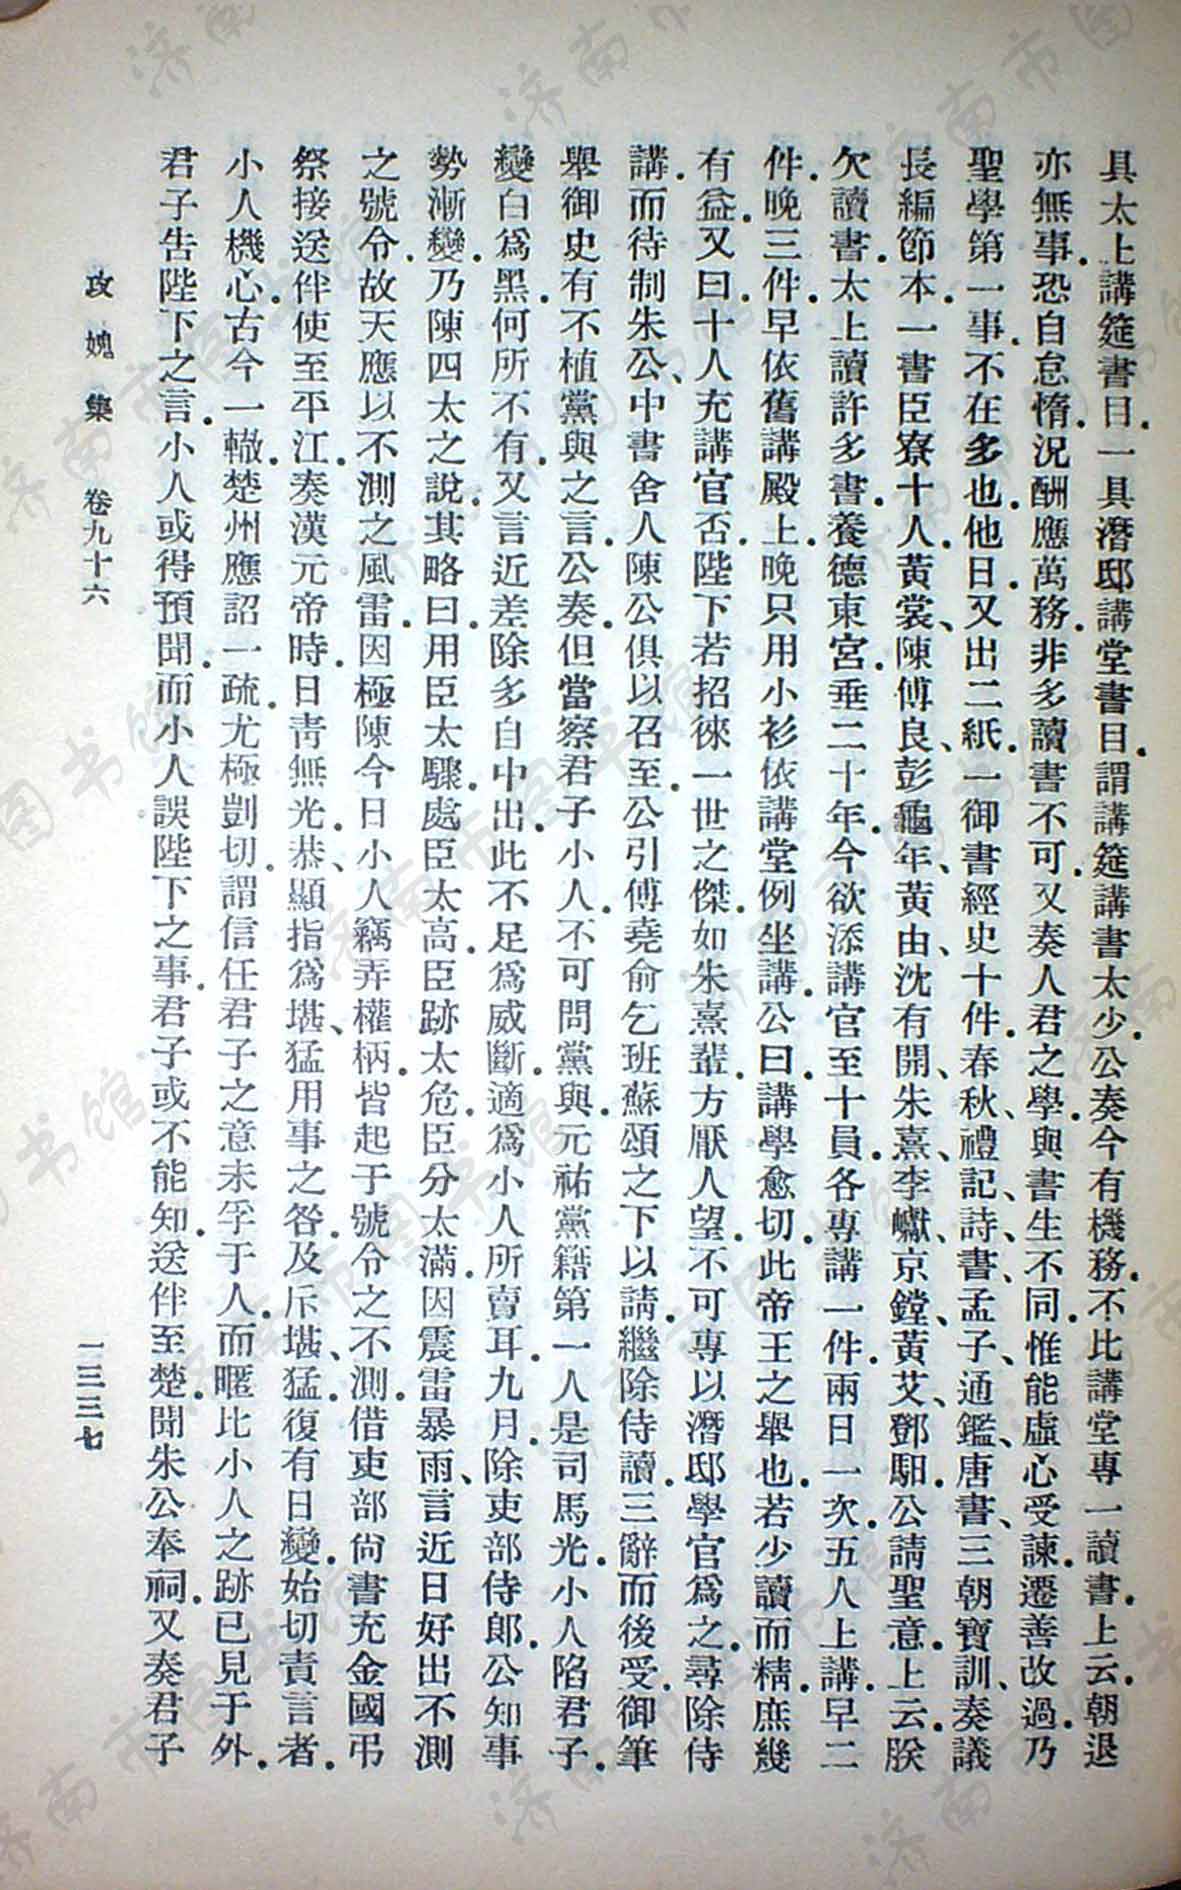 具太上講筵書日一具潛邸講堂書日謂講筵講書太少公奏今有機務不比講堂專一讀書上云朝退
亦無事恐自怠惰況酬應萬務非多讀書不可又奏人君之學與書生不同惟能虛心受諫遷善改過乃
聖學第一事不在多也他日又出二紙一御書經史十件春秋、禮記、詩書、孟子、通鑑、唐書、三朝寶訓、奏議
長編節本一書臣寮十人黃裳、陳傅良、彭龜年、黃由、沈有開、朱熹、李巘、京鏜、黃艾、鄧馹公請聖意上云朕
欠讀書太上讀許多書養德東宮垂二十年今欲添講官至十員各專講一件兩日一次五人上講早二
件晚三件早依舊講殿上晚只用小衫依講堂例坐講公曰講學愈切此帝王之舉也若少讀而精庶幾
有益又曰十人充講官否陛下若招徠一世之傑如朱熹輩方厭人望不可專以潛邸學官為之尋除侍
講而待制朱公、中書舍人陳公俱以召至公引傅堯俞乞班蘇頌之下以請繼除侍讀三辭而後受御筆
舉御史有不植黨與之言公奏但當察君子小人不可問黨與元祐黨籍第一人是司馬光小人陷君子
變白為黑何所不有又言近差除多自中出此不足為威斷適為小人所賣耳九月除吏部侍郎公知事
勢漸變乃陳四太之說其略曰用臣太驟處臣太高臣跡太危臣分太滿因震雷暴雨、言近日好出不測
之號令故天應以不測之風雷因極陳今日小人竊弄權柄皆起于號令之不測借吏部尚書充金國弔
祭接送伴使至平江奏漢元帝時日靑無光恭、顯指為堪、猛用事之咎及斥堪、猛復有日變始切責言者
小人機心古今一轍楚州應詔一疏尤極剴切謂信任君子之意未孚于人而暱比小人之跡已見于外
君子告陛下之言小人或得預聞而小人誤陛下之事君子或不能知送伴至楚聞朱公奉祠又奏君子
攻媿集 卷九十六 一三三七
濟南市图书馆